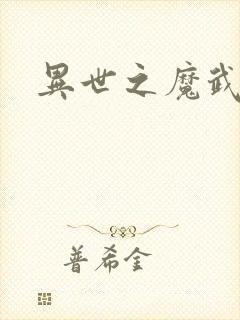 異世之魔武
普希金